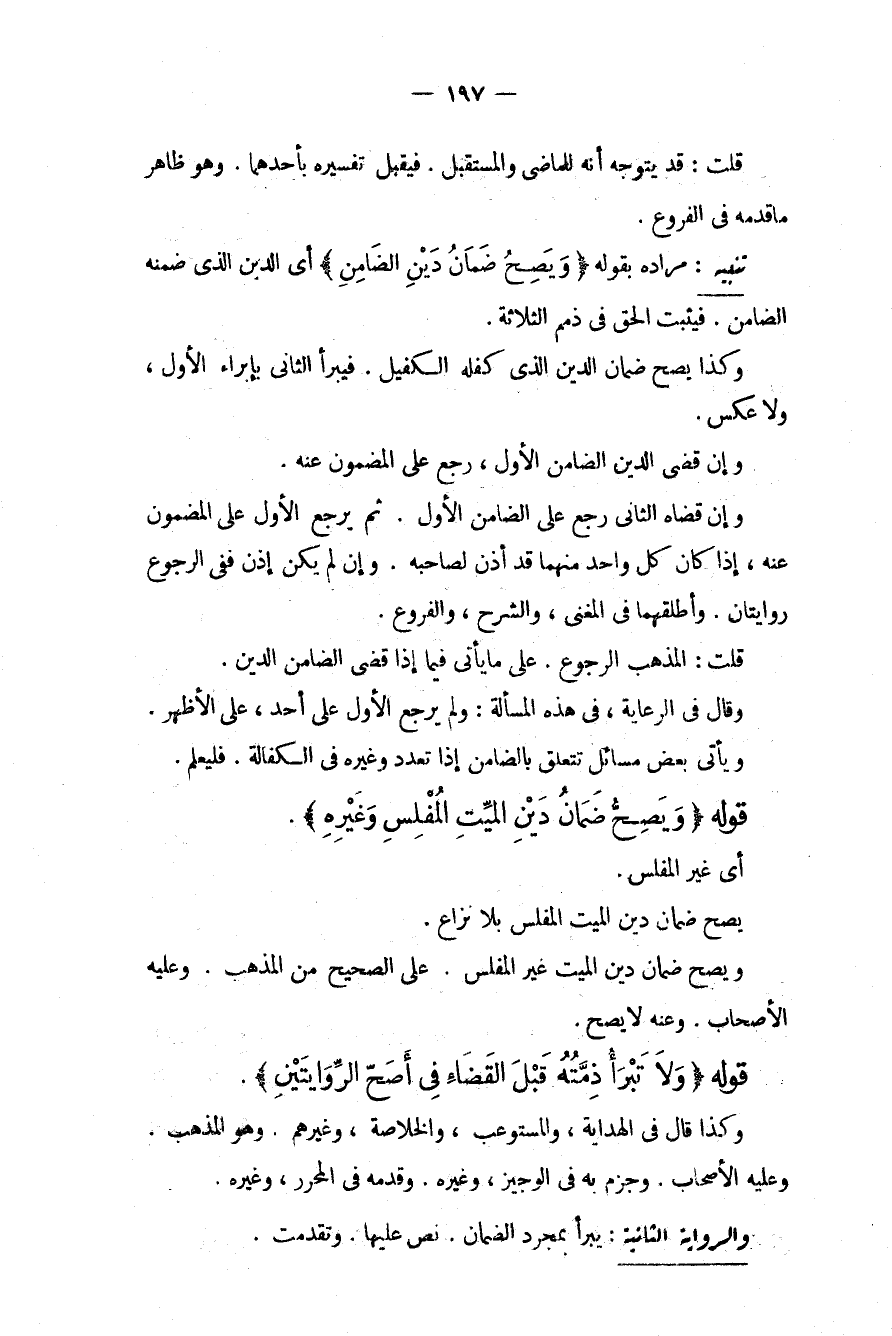 — ١٩٧ —
قلت : قد يتوجه أنه للماضى والمستقبل . فيقبل تفسيره بأحدهما . وهو ظاهر
ماقدمه فى الفروع .
تنبيه : مراده بقوله ﴿ وَيَصِحُ ضَمَانُ دَيْنِ الضَامِنِ ﴾ أى الدين الذى ضمنه
الضامن . فيثبت الحق فى ذمم الثلاثة .
وكذا يصح ضمان الدين الذى كفله الكفيل . فيبرأ الثانى بإبراء الأول ،
ولا عكس .
وإن قضى الدين الضامن الأول ، رجع على المضمون عنه .
وإن قضاه الثانى رجع على الضامن الأول . ثم يرجع الأول على المضمون
عنه ، إذا كان كل واحد منهما قد أذن لصاحبه . وإن لم يكن إذن ففى الرجوع
روايتان . وأطلقهما فى المغنى ، والشرح ، والفروع .
قلت : المذهب الرجوع . على مايأتى فيما إذا قضى الضامن الدين .
وقال فى الرعاية ، فى هذه المسألة : ولم يرجع الأول على أحد ، على الأظهر .
ويأتى بعض مسائل تتعلق بالضامن إذا تعدد وغيره فى الكفالة . فليعلم .
قوله ﴿ وَيَصِحُّ ضَمَانُ دَيْنِ المَيِّتِ المُفْلِسِ وَغَيْرِهِ ﴾ .
أى غير المفلس .
يصح ضمان دين الميت المفلس بلا نزاع .
ويصح ضمان دين الميت غير المفلس . على الصحيح من المذهب . وعليه
الأصحاب . وعنه لا يصح .
قوله ﴿ وَلاَ تَبْرَأُ ذِمَّتُهُ قَبْلَ القَضَاءِ فِى أَصَحّ الرِّوَايَتَيْنِ ﴾ .
وكذا قال فى الهداية ، والمستوعب ، والخلاصة ، وغيرهم . وهو المذهب .
وعليه الأصحاب . وجزم به فى الوجيز ، وغيره . وقدمه فى المحرر ، وغيره .
والرواية الثانية : يبرأ بمجرد الضمان . نص عليها . وتقدمت .